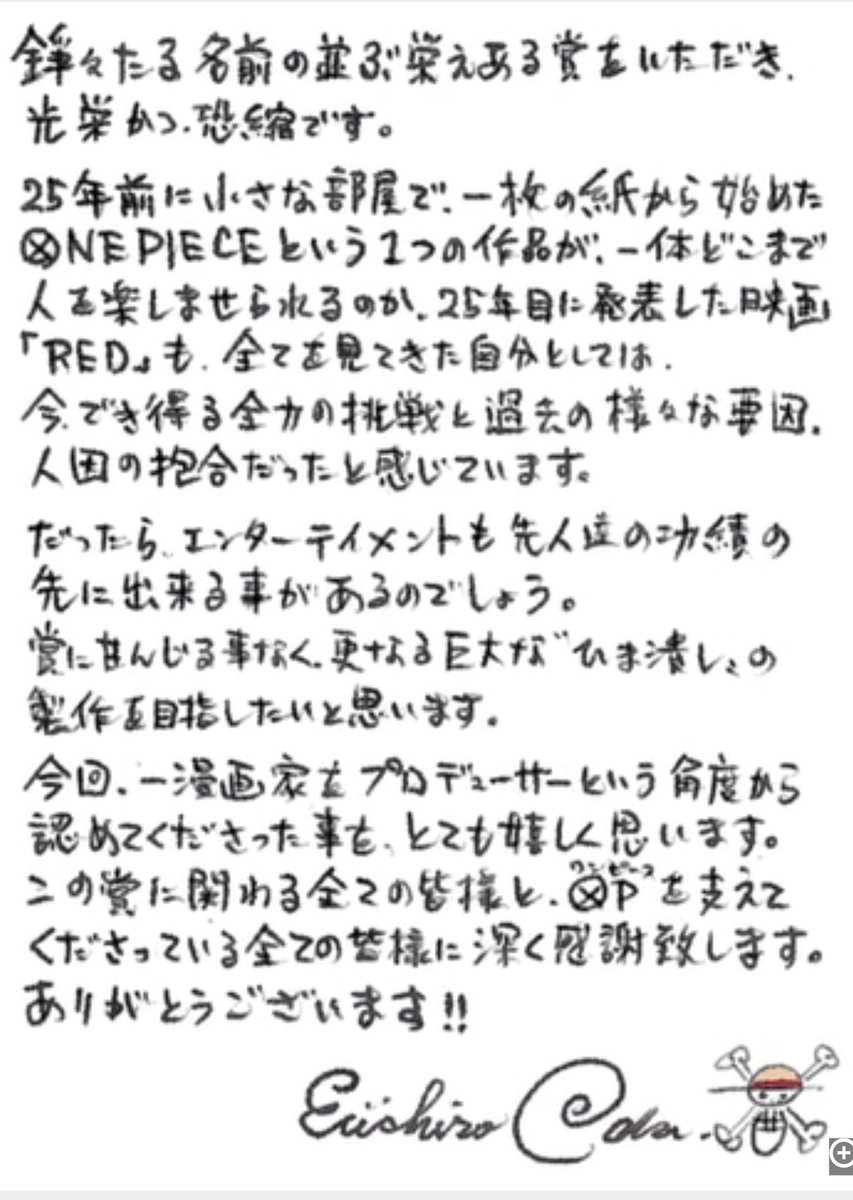 錚々たる名前の並ぶ栄えある賞をいただき、
光栄かつ、恐縮です。
25年前に小さな部屋で、一枚の紙から始めた
ⓍNE PIECEという1つの作品が、一体どこまで
人を楽しませられるのか、25年目に発表した映画
「RED」も、全てを見てきた自分としては、
今、でき得る全力の挑戦と過去の様々な要因、
人因の抱合だったと感じています。
だったら、エンターテイメントも先人達の功績の
先に出来る事があるのでしょう。
賞に甘んじる事なく、更なる巨大な〝ひま潰し〟の
製作を目指したいと思います。
今回、一漫画家をプロデューサーという角度から
認めてくださった事を、とても嬉しく思います。
この賞に関わる全ての皆様と、ⓍP(ワンピース)を支えて
くださっている全ての皆様に深く感謝致します。
ありがとうございます!!
Eiichiro Oda.